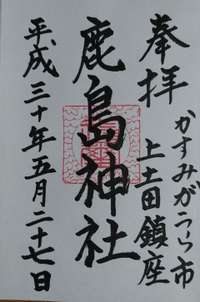 奉拝
かすみがうら市
上土田鎮座
鹿島神社
平成三十年五月二十七日